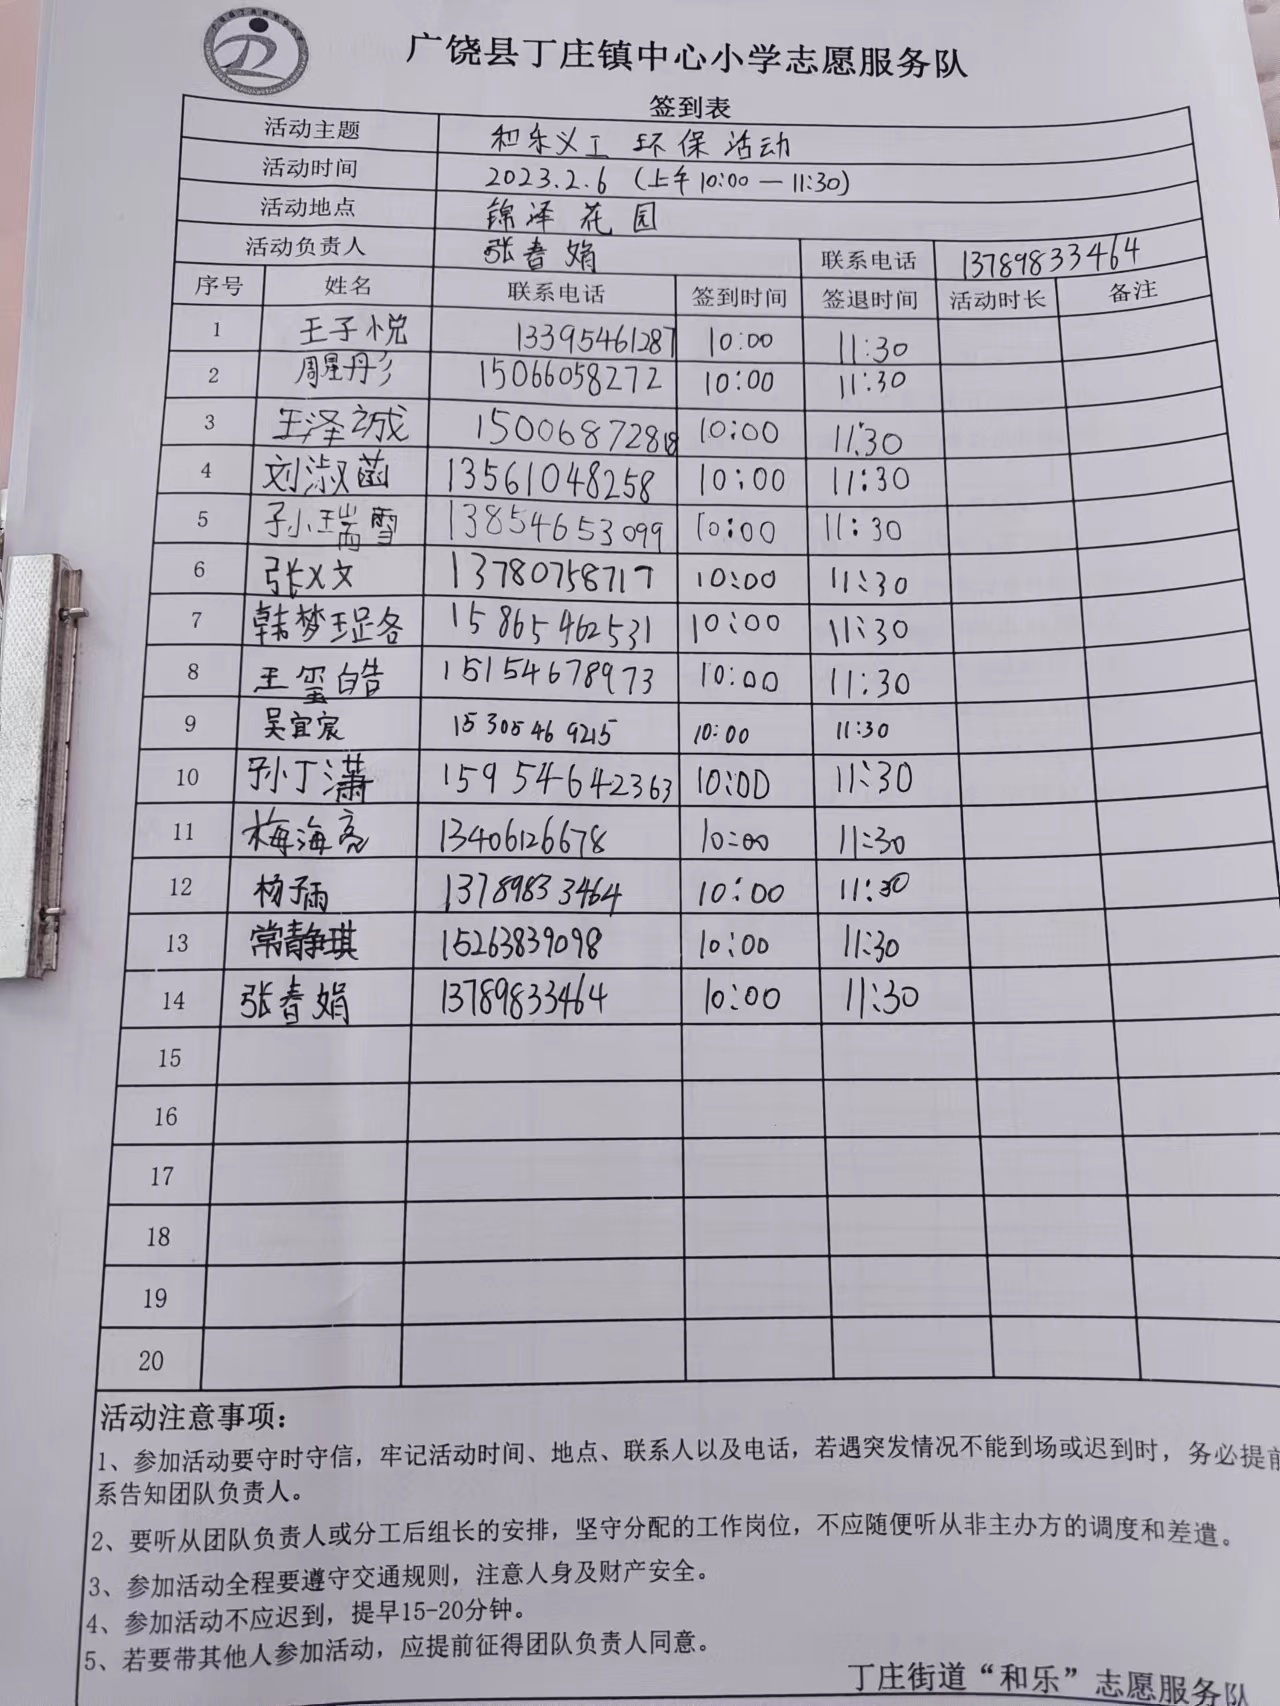 广饶县丁庄镇中心小学志愿服务队
签到表
活动主题 和乐义工 环保活动
活动时间 2023.2.6 (上午10:00—11:30)
活动地点 锦泽花园
活动负责人 张春娟 联系电话 13789833464
序号 姓名 联系电话 签到时间 签退时间 活动时长 备注
1 王子悦 13395461287 10:00 11:30
2 周星彤 15066058272 10:00 11:30
3 王泽诚 10:00 11:30
4 刘淑菡 13561048258 10:00 11:30
5 孙瑞雪 13854653099 10:00 11:30
6 张义文 13780758717 10:00 11:30
7 韩梦珺各 15865462531 10:00 11:30
8 王玺皓 15154678973 10:00 11:30
9 吴宜宸 15305469215 10:00 11:30
10 孙丁潇 15954642363 10:00 11:30
11 梅海亮 13406126678 10:00 11:30
12 杨子雨 13789833464 10:00 11:30
13 常静琪 15263839098 10:00 11:30
14 张春娟 13789833464 10:00 11:30
15
16
17
18
19
20
活动注意事项：
1、参加活动要守时守信，牢记活动时间、地点、联系人以及电话，若遇突发情况不能到场或迟到时，务必提前
系告知团队负责人。
2、要听从团队负责人或分工后组长的安排，坚守分配的工作岗位，不应随便听从非主办方的调度和差遣。
3、参加活动全程要遵守交通规则，注意人身及财产安全。
4、参加活动不应迟到，提早15-20分钟。
5、若要带其他人参加活动，应提前征得团队负责人同意。
丁庄街道“和乐”志愿服务队